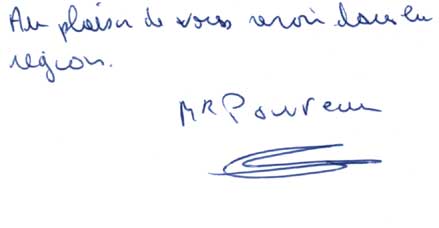 Au plaisir de vous revoir dans la
région.
Mr Pouvreau